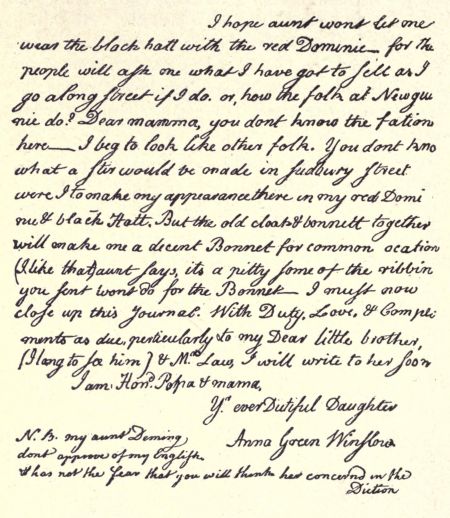 I hope aunt wont let me
wear the black hatt with the red Dominie— for the
people will ask me what I have got to sell as I
go along street if I do. or, how the folk at Newgui
nie do? Dear mamma, you dont know the fation
here— I beg to look like other folk. You dont kno
what a stir would be made in sudbury street
were I to make my appearance there in my red Domi
nie & black Hatt. But the old cloak & bonnett together
will make me a decent Bonnet for common ocation
(I like that) aunt says, its a pitty some of the ribbin
you sent wont do for the Bonnet— I must now
close up this Journal. With Duty, Love, & Compli-
ments as due, perticularly to my Dear little brother,
(I long to see him) & Mrs. Law, I will write to her soon
I am Hond. Papa & mama,
Yr. ever Dutiful Daughter
Anna Green Winslow.
N. B. my aunt Deming
dont approve of my English.
& has not the fear that you will think her concernd in the
Diction